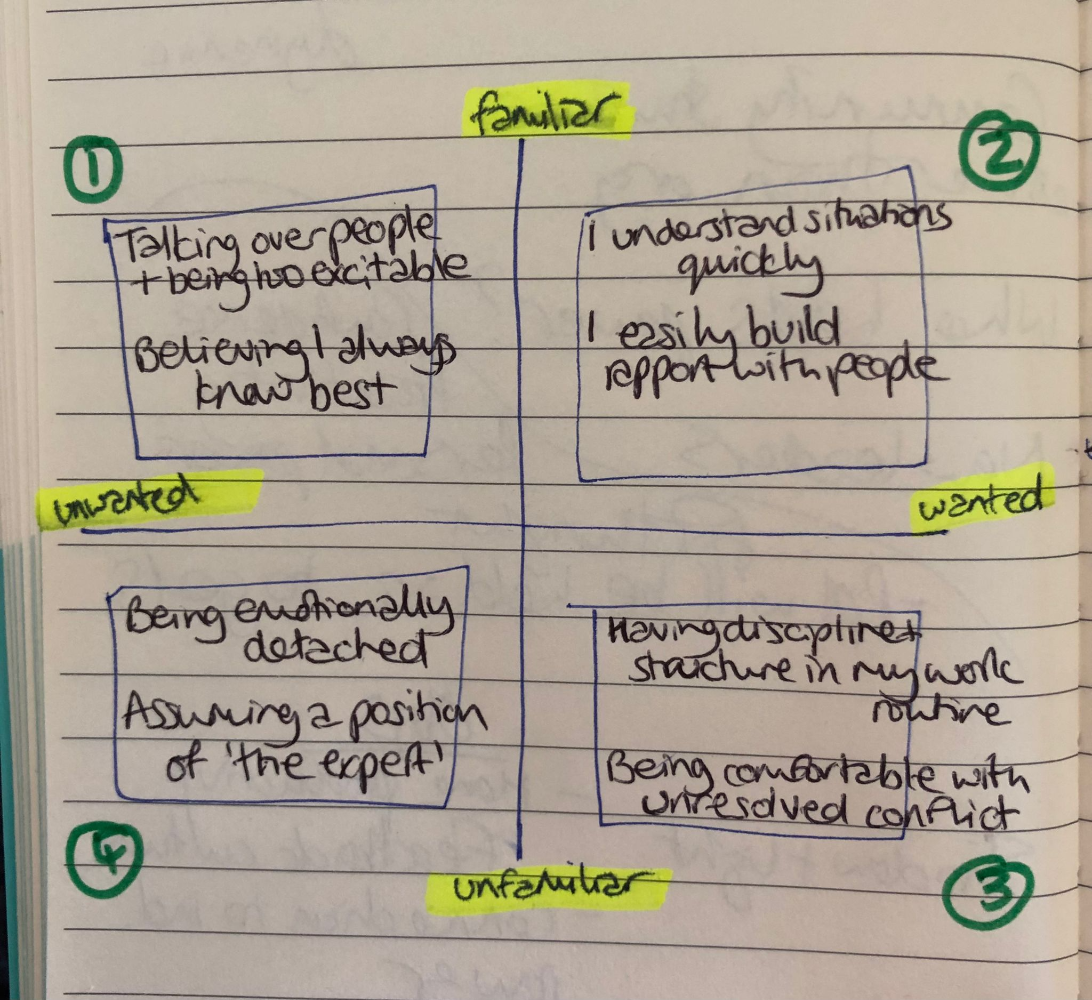 familiar
1
Talking over people
+ being too excitable
Believing I always
know best
2
I understand situations
quickly
I easily build
rapport with people
unwanted
wanted
Being emotionally
detached
Assuming a position
of 'the expert'
4
Having discipline +
structure in my work
routine
Being comfortable with
unresolved conflict
3
unfamiliar